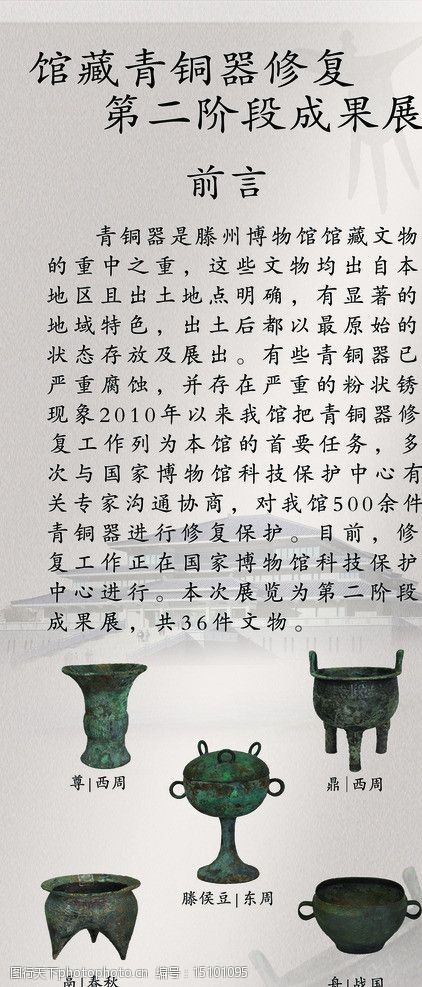 馆藏青铜器修复
第二阶段成果展
前言
青铜器是滕州博物馆馆藏文物
的重中之重，这些文物均出自本
地区且出土地点明确，有显著的
地域特色，出土后都以最原始的
状态存放及展出。有些青铜器已
严重腐蚀，并存在严重的粉状锈
现象2010年以来我馆把青铜器修
复工作列为本馆的首要任务，多
次与国家博物馆科技保护中心有
关专家沟通协商，对我馆500余件
青铜器进行修复保护。目前，修
复工作正在国家博物馆科技保护
中心进行。本次展览为第二阶段
成果展，共36件文物。
尊|西周
鼎|西周
滕侯豆|东周
鬲|春秋
舟|战国
图行天下 photophoto.cn 编号：15101095